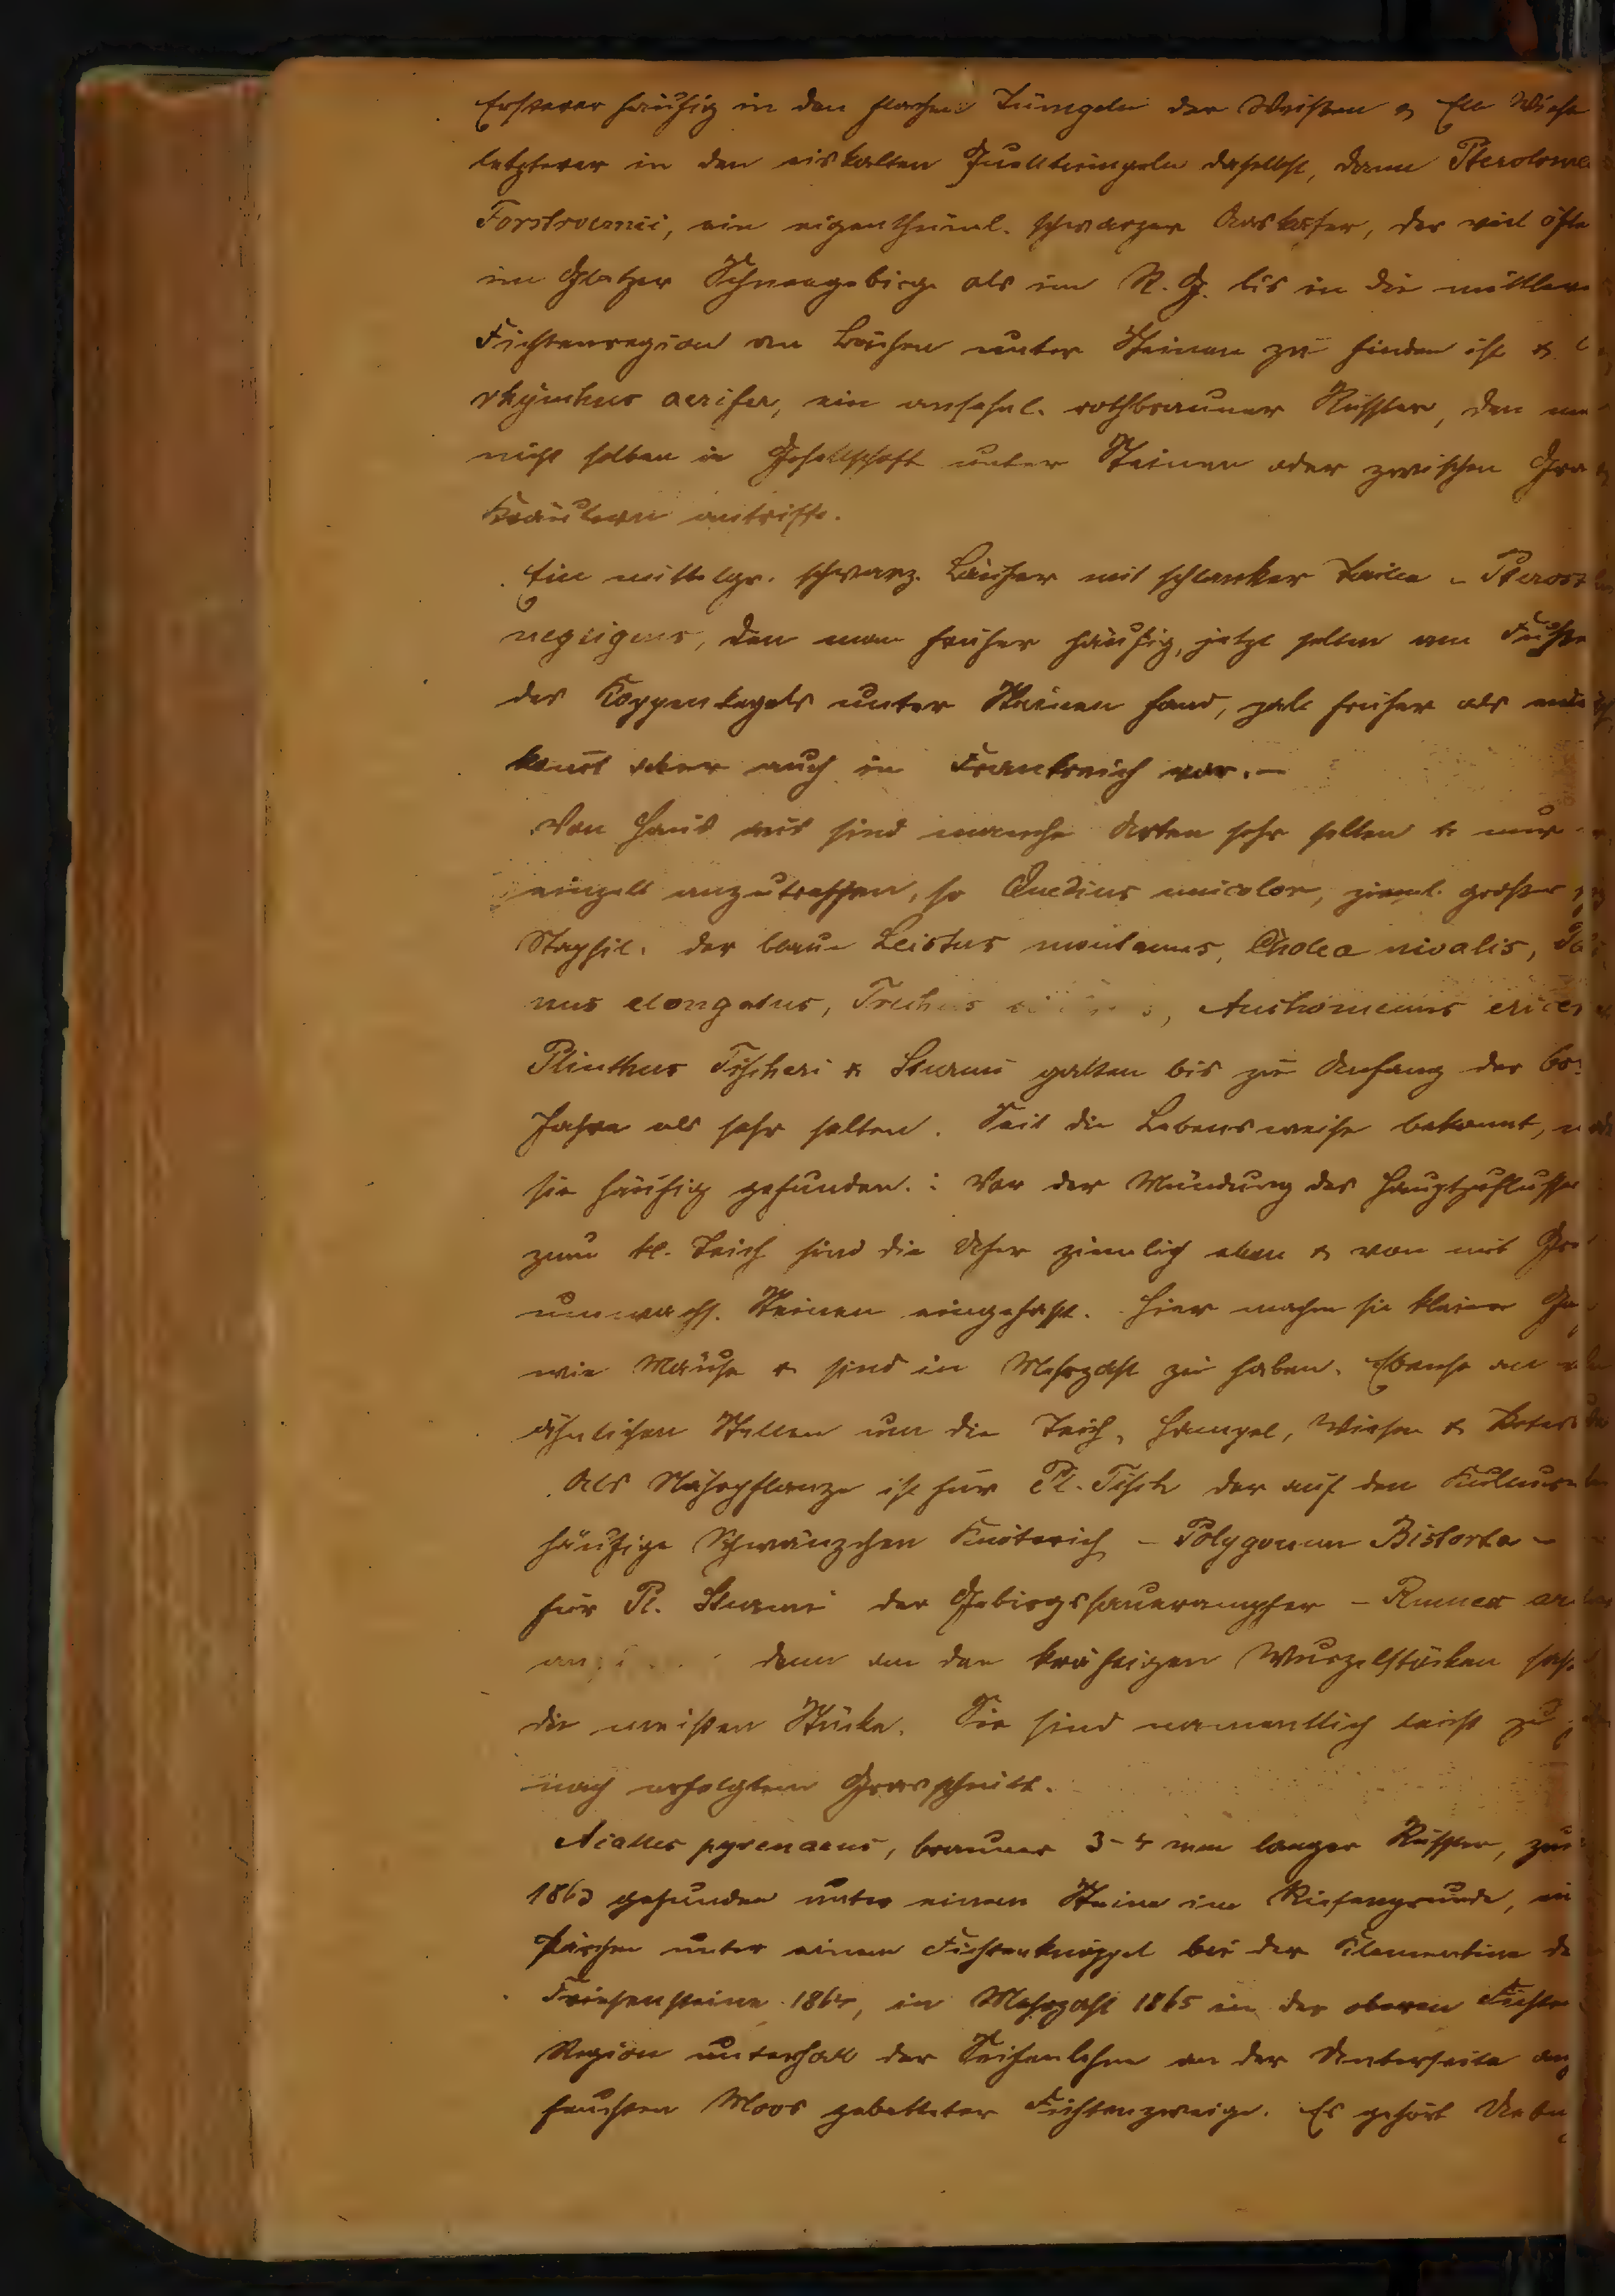 Ersterer häufig in den flachen Tümpeln der Weißen & Elb Wiese
letzterer in den eiskalten Quelltümpeln daselbst, dann Pteroloma
Forstroemii, ein eigenthüml. schwarzer Aaskäfer, der viel öfte
im Glatzer Schneegebirge als im R. G. bis in die mittlere
Fichtenregion an Bächen unter Steinen zu finden ist &
rhynchus aerifer, ein ansehnl. rothbrauner Rüssler, den
nicht selten in Gesellschaft unter Steinen oder zwischen Gra
Kräutern antrifft.
Ein mittelgr. schwarz. Läufer mit schlanker Taille - Pterost
negligens, den man früher häufig, jetzt selten am Fuße
des Koppenkegels unter Steinen fand, galt früher als
komt aber auch in Frankreich vor. -
Von Haus aus sind manche Arten sehr selten & nur
einzeln anzutreffen, so Quedius unicolor, zieml. großer
Staphil. der blaue Leistus montanus, Choleva nivalis,
nus elongatus, Trechus, Anchomenus ericeti
Plinthus Tischeri & Sturmi galten bis zu Anfang der 60
Jahre als sehr selten. Seit die Lebensweise bekannt,
sie häufig gefunden.: Vor der Mündung des Hauptzuflusses
zum kl. Teich sind die Ufer ziemlich eben & von mit Gras
umwachs. Steinen eingefasst. Hier machen sie kleine
wie Mäuse & sind in Mehrzahl zu haben. Ebenso an
ähnlichen Stellen um die Teich, Hampel, Wiesen &
Als Nährpflanze ist für Pl. Tisch der auf den
häufige Schwänzchen Knöterich - Polygonum Bistorta -
für Pl. Sturmi der Gebirgssauerampfer - Rumex
denn an den kräftigen Wurzelstöcken saß
die meisten Stücke. Sie sind namentlich leicht zu
nach erfolgtem Grasschnitt.
Acalles pyrenaeus, brauner 3-4 mm langer Rüssler,
1863 gefunden unter einem Steine im Riesengrunde, ein
Pärchen unter einem Fichtenknüppel bei der Klementine
Friesensteine 1864, in Mehrzahl 1865 in der oberen Fichten
Region unterhalb der Seifenlehne an der Unterseite
feuchten Moos gebetteter Fichtenzweige. Es gehört